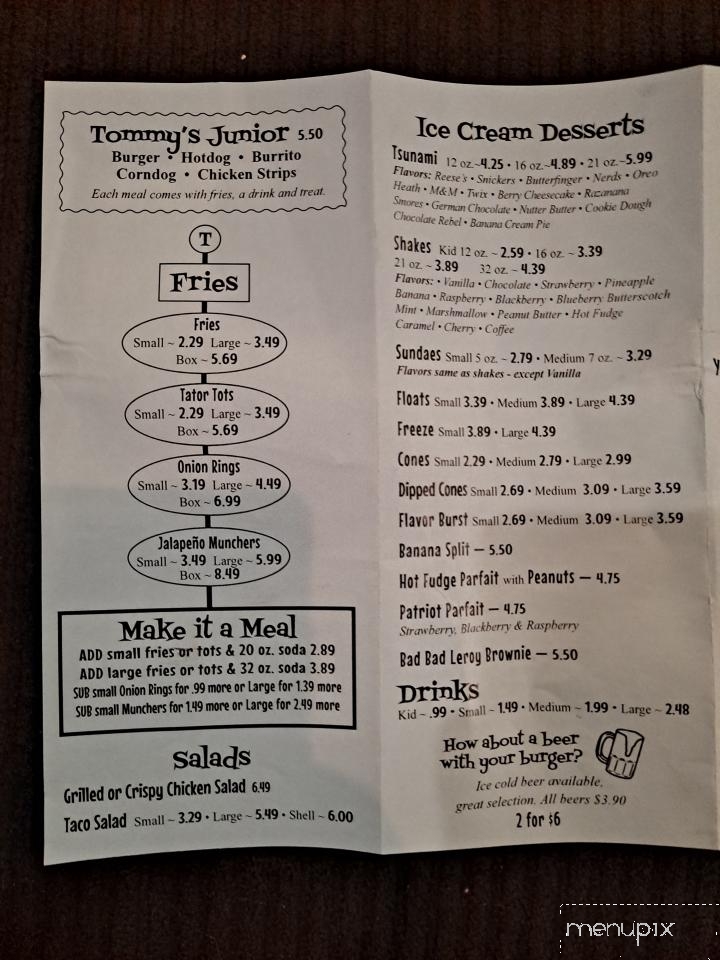 Tommy's Junior 5.50
Burger • Hotdog • Burrito
Corndog • Chicken Strips
Each meal comes with fries, a drink and treat.
T
Fries
Fries
Small ~ 2.29 Large ~ 3.49
Box ~ 5.69
Tator Tots
Small ~ 2.29 Large ~ 3.49
Box ~ 5.69
Onion Rings
Small ~ 3.19 Large ~ 4.49
Box ~ 6.99
Jalapeño Munchers
Small ~ 3.49 Large ~ 5.99
Box ~ 8.49
Make it a Meal
ADD small fries or tots & 20 oz. soda 2.89
ADD large fries or tots & 32 oz. soda 3.89
SUB small Onion Rings for .99 more or Large for 1.39 more
SUB small Munchers for 1.49 more or Large for 2.49 more
Salads
Grilled or Crispy Chicken Salad 6.49
Taco Salad Small ~ 3.29 • Large ~ 5.49 • Shell ~ 6.00
Ice Cream Desserts
Tsunami 12 oz.~4.25 • 16 oz.~4.89 • 21 oz.~5.99
Flavors: Reese's • Snickers • Butterfinger • Nerds • Oreo
Heath • M&M • Twix • Berry Cheesecake • Razanana
Smores • German Chocolate • Nutter Butter • Cookie Dough
Chocolate Rebel • Banana Cream Pie
Shakes Kid 12 oz. ~ 2.59 • 16 oz. ~ 3.39
21 oz. ~ 3.89 32 oz. ~ 4.39
Flavors: • Vanilla • Chocolate • Strawberry • Pineapple
Banana • Raspberry • Blackberry • Blueberry Butterscotch
Mint • Marshmallow • Peanut Butter • Hot Fudge
Caramel • Cherry • Coffee
Sundaes Small 5 oz. ~ 2.79 • Medium 7 oz. ~ 3.29
Flavors same as shakes - except Vanilla
Floats Small 3.39 • Medium 3.89 • Large 4.39
Freeze Small 3.89 • Large 4.39
Cones Small 2.29 • Medium 2.79 • Large 2.99
Dipped Cones Small 2.69 • Medium 3.09 • Large 3.59
Flavor Burst Small 2.69 • Medium 3.09 • Large 3.59
Banana Split — 5.50
Hot Fudge Parfait with Peanuts — 4.75
Patriot Parfait — 4.75
Strawberry, Blackberry & Raspberry
Bad Bad Leroy Brownie — 5.50
Drinks
Kid ~ .99 • Small ~ 1.49 • Medium ~ 1.99 • Large ~ 2.48
How about a beer
with your burger?
Ice cold beer available,
great selection. All beers $3.90
2 for $6
menupix